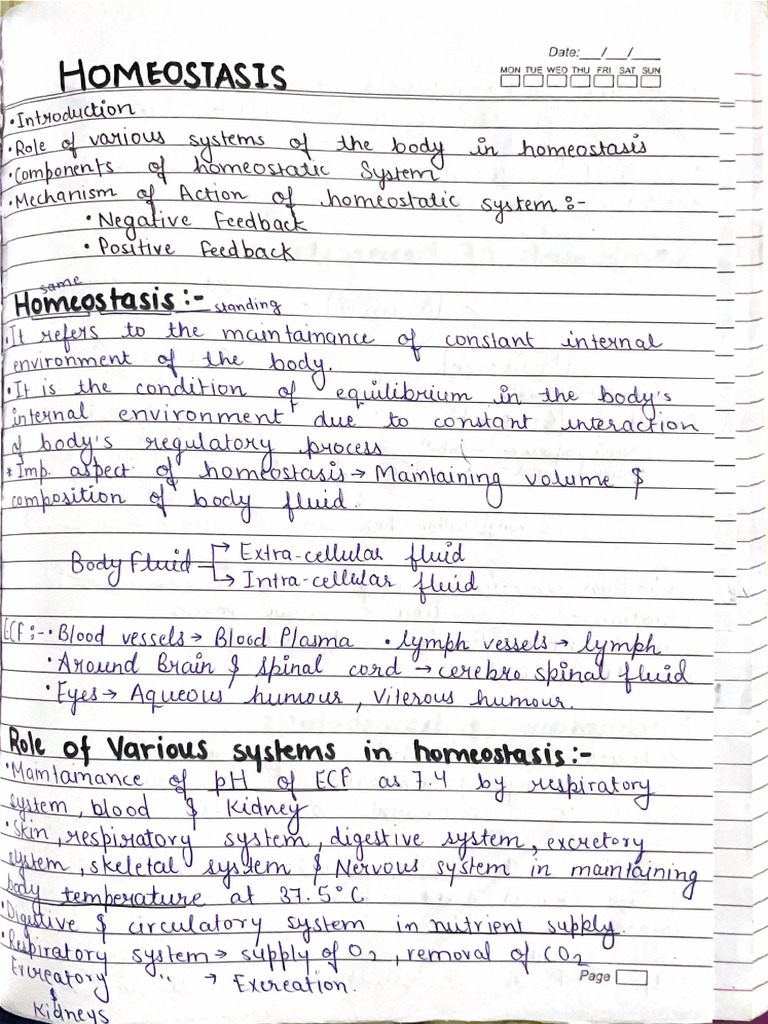 Date: __/__/__
HOMEOSTASIS
MON TUE WED THU FRI SAT SUN
• Introduction
• Role of various systems of the body in homeostasis
• Components of homeostatic System
• Mechanism of Action of homeostatic system :-
• Negative Feedback
• Positive Feedback
same
Homeostasis :- standing
• It refers to the maintainance of constant internal
environment of the body.
• It is the condition of equilibrium in the body's
internal environment due to constant interaction
of body's regulatory process
* Imp. aspect of homeostasis → Maintaining volume &
composition of body fluid.
Body Fluid → Extra-cellular fluid
→ Intra-cellular fluid
ECF :- • Blood vessels → Blood Plasma • lymph vessels → lymph
• Around Brain & spinal cord → cerebro spinal fluid
• Eyes → Aqueous humour, Viterous humour.
Role of Various systems in homeostasis :-
• Maintainance of pH of ECF as 7.4 by respiratory
system, blood & Kidney
• Skin, respiratory system, digestive system, excretory
system, skeletal system & Nervous system in maintaining
body temperature at 37.5°C
• Digestive & circulatory system in nutrient supply.
• Respiratory system → supply of O2, removal of CO2
Excreatory " → Excreation.
&
Kidneys
Page